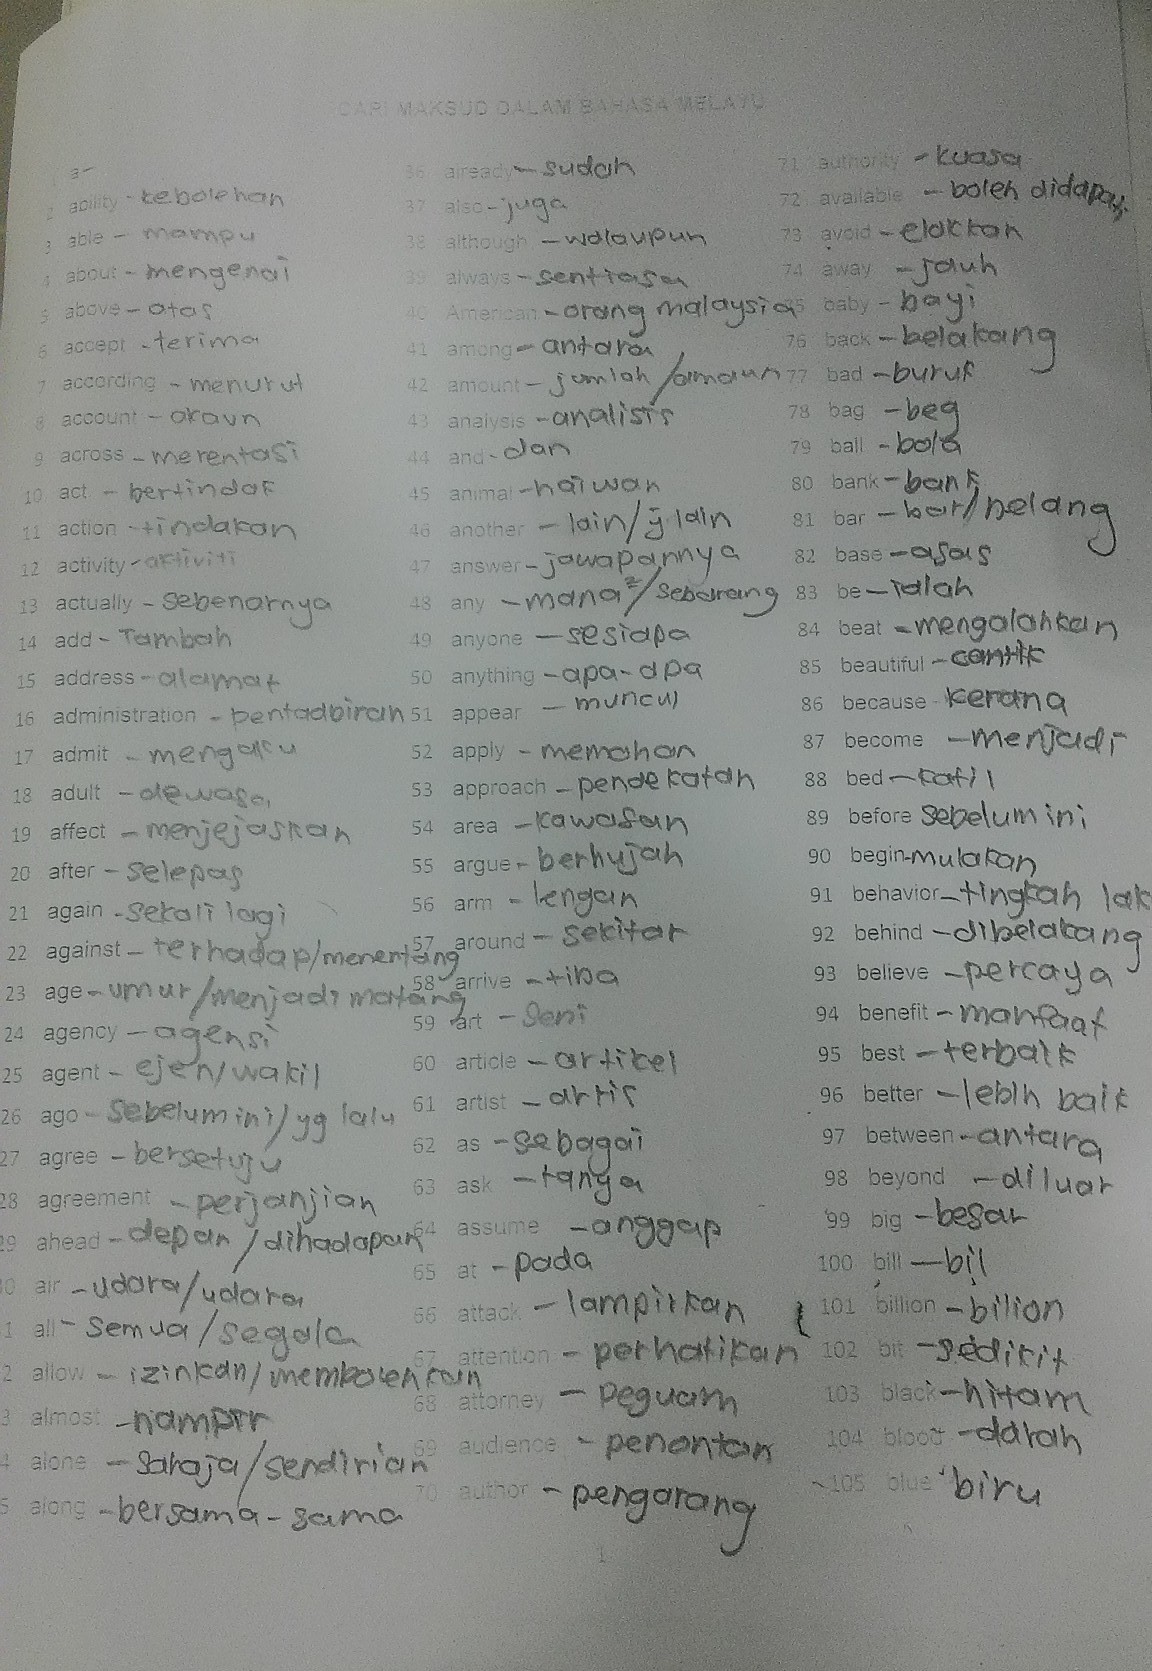 CARI MAKSUD DALAM BAHASA MELAYU
a-
2 ability - kebolehan
3 able - mampu
4 about - mengenai
5 above - atas
6 accept - terima
7 according - menurut
8 account - akaun
9 across - merentasi
10 act - bertindak
11 action - tindakan
12 activity - aktiviti
13 actually - sebenarnya
14 add - Tambah
15 address - alamat
16 administration - pentadbiran
17 admit - mengaku
18 adult - dewasa
19 affect - menjejaskan
20 after - selepas
21 again - sekali lagi
22 against - terhadap/menentang
23 age - umur/menjadi matang
24 agency - agensi
25 agent - ejen/wakil
26 ago - sebelum ini/yg lalu
27 agree - bersetuju
28 agreement - perjanjian
29 ahead - depan/dihadapan
0 air - udara/udara
1 all - semua/segala
2 allow - izinkan/membolehkan
3 almost - hampir
4 alone - sahaja/sendirian
5 along - bersama-sama
36 already - sudah
37 also - juga
38 although - walaupun
39 always - sentiasa
40 American - orang malaysia
41 among - antara
42 amount - jumlah/amaun
43 analysis - analisis
44 and - dan
45 animal - haiwan
46 another - lain/y lain
47 answer - jawapannya
48 any - mana²/sebarang
49 anyone - sesiapa
50 anything - apa-apa
51 appear - muncul
52 apply - memohon
53 approach - pendekatan
54 area - kawasan
55 argue - berhujah
56 arm - lengan
57 around - sekitar
58 arrive - tiba
59 art - seni
60 article - artikel
61 artist - artis
62 as - sebagai
63 ask - tanya
64 assume - anggap
65 at - pada
66 attack - lampirkan
67 attention - perhatikan
68 attorney - peguam
69 audience - penonton
70 author - pengarang
71 authority - kuasa
72 available - boleh didapati
73 avoid - elakkan
74 away - jauh
75 baby - bayi
76 back - belakang
77 bad - buruk
78 bag - beg
79 ball - bola
80 bank - bank
81 bar - bar/helang
82 base - asas
83 be - ialah
84 beat - mengalahkan
85 beautiful - cantik
86 because - kerana
87 become - menjadi
88 bed - katil
89 before sebelum ini
90 begin - mulakan
91 behavior - tingkah lak
92 behind - dibelakang
93 believe - percaya
94 benefit - manfaat
95 best - terbaik
96 better - lebih baik
97 between - antara
98 beyond - diluar
99 big - besar
100 bill - bil
101 billion - bilion
102 bit - sedikit
103 black - hitam
104 blood - darah
105 blue - biru
1